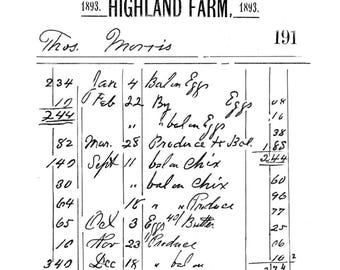 1893. HIGHLAND FARM, 1893.
Thos. Morris 191
234 Jan 4 Bal on Eggs
10 Feb 22 By Eggs 08
244 " " bal on Eggs 16
38
82 Mar. 28 Produce & Bal. 1 88
140 Sept 11 bal on Chix 244
30 " " bal on Chix 60
64 15 " " Produce 96
77
65 Oct 3 Eggs 40/ Butter 25
10 Nov 23 Produce 06
340 Dec 18 " bal on